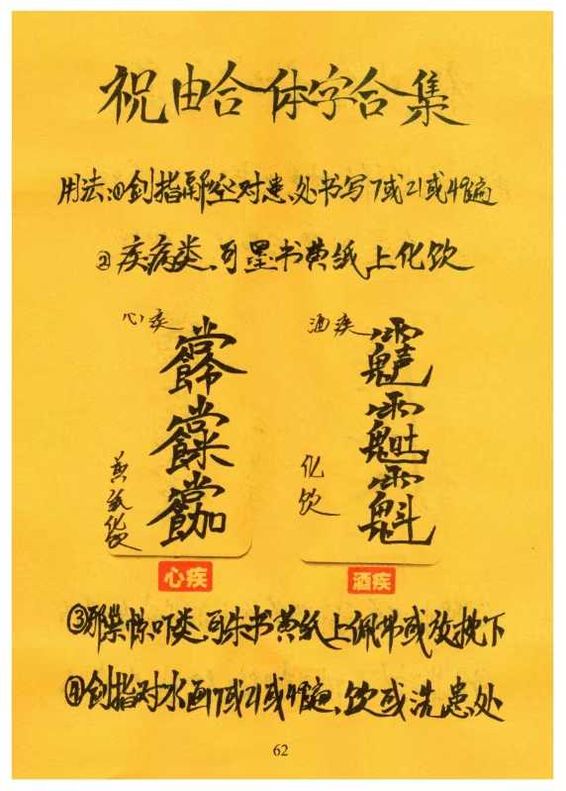 祝由合体字合集
用法:①剑指凌空对患处书写7或21或49遍
②疾病类,可墨书黄纸上化饮
心疾
黄纸化饮
心疾
酒疾
化饮
酒疾
③邪祟惊吓类,可朱书黄纸上佩带或放枕下
④剑指对水画7或21或49遍,饮或洗患处
62